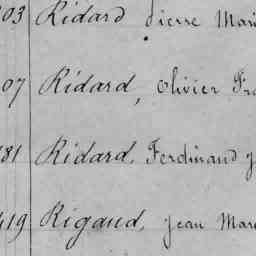 03 Ridard Pierre Mari
07 Ridard, Olivier Fra
81 Ridard, Ferdinand J
419 Rigaud, Jean Marc